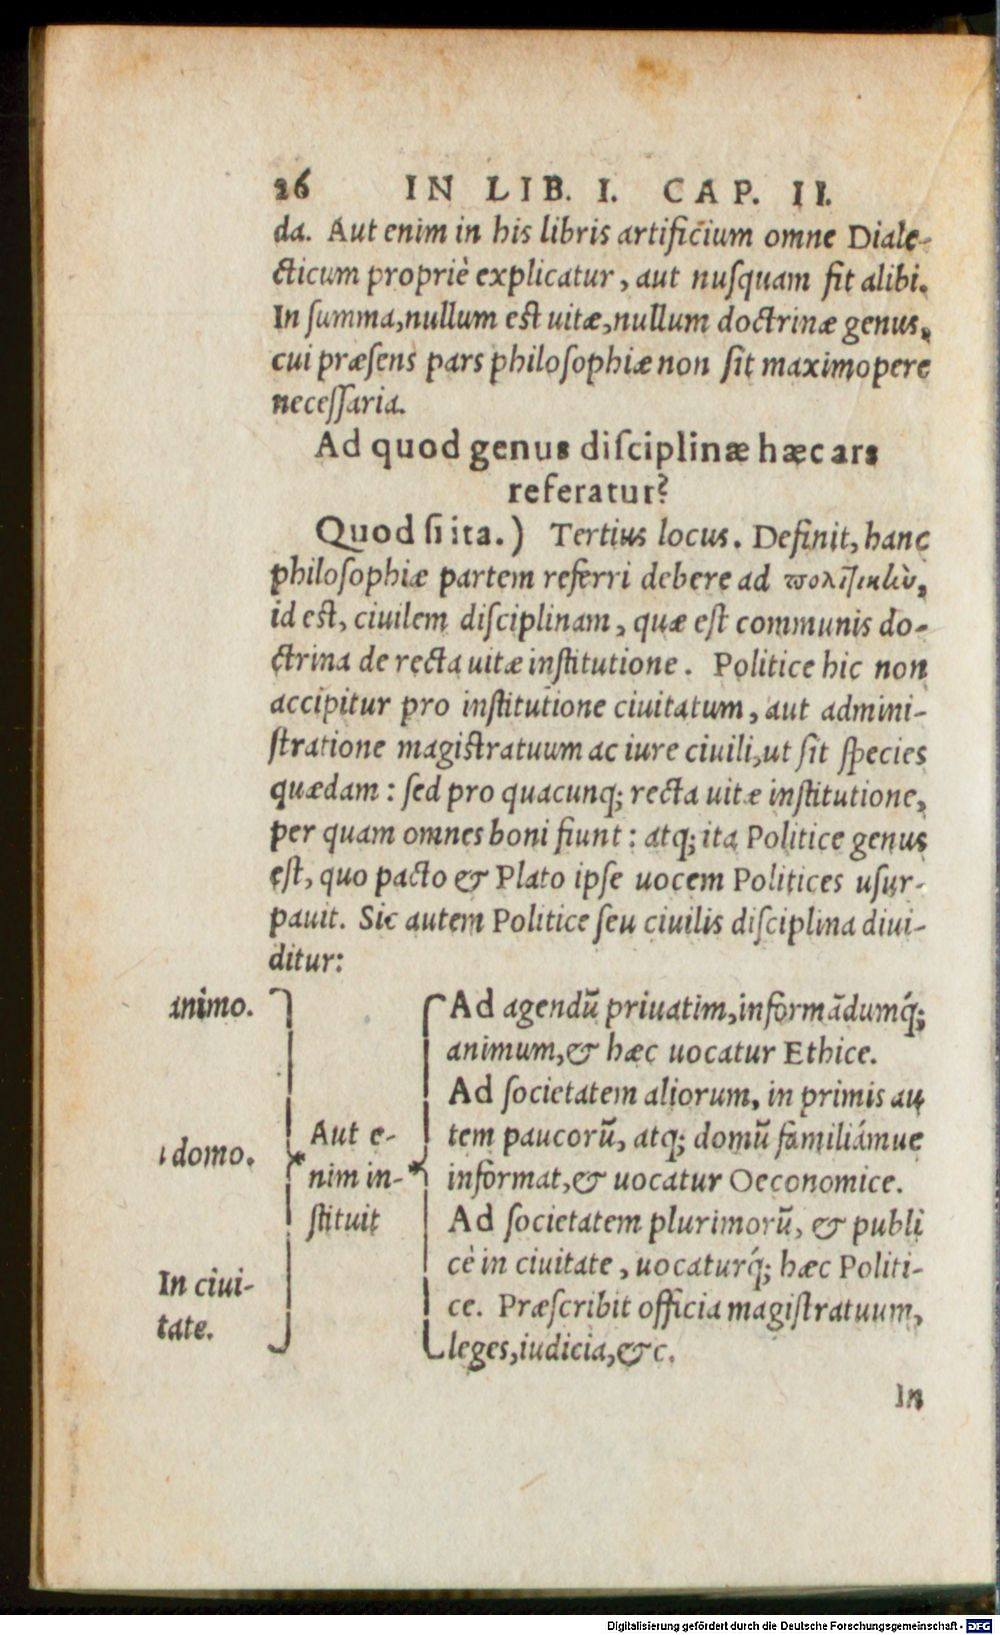 26 IN LIB. I. CAP. II.
da. Aut enim in his libris artificium omne Diale-
cticum propriè explicatur, aut nuſquam fit alibi.
In ſumma, nullum est uitæ, nullum doctrinæ genus,
cui præſens pars philoſophiæ non ſit maximopere
neceſſaria.
Ad quod genus diſciplinæ hæc ars
referatur?
Quod ſi ita.) Tertius locus. Definit, hanc
philoſophiæ partem referri debere ad πολιτικὴν,
id est, ciuilem diſciplinam, quæ eſt communis do-
ctrina de recta uitæ inſtitutione. Politice hic non
accipitur pro inſtitutione ciuitatum, aut admini-
ſtratione magiſtratuum ac iure ciuili, ut ſit ſpecies
quædam: ſed pro quacunq; recta uitæ inſtitutione,
per quam omnes boni fiunt: atq; ita Politice genus
eſt, quo pacto & Plato ipſe uocem Politices uſur-
pauit. Sic autem Politice ſeu ciuilis diſciplina diui-
ditur:
animo.
domo.
In ciui-
tate.
Aut e-
nim in-
ſtituit
Ad agendū priuatim, informādumq́;
animum, & hæc uocatur Ethice.
Ad ſocietatem aliorum, in primis au
tem paucorū, atq; domū familiámue
informat, & uocatur Oeconomice.
Ad ſocietatem plurimorū, & publi
cè in ciuitate, uocaturq́; hæc Politi-
ce. Præſcribit officia magiſtratuum,
leges, iudicia, &c.
In
Digitalisierung gefördert durch die Deutsche Forschungsgemeinschaft - DFG